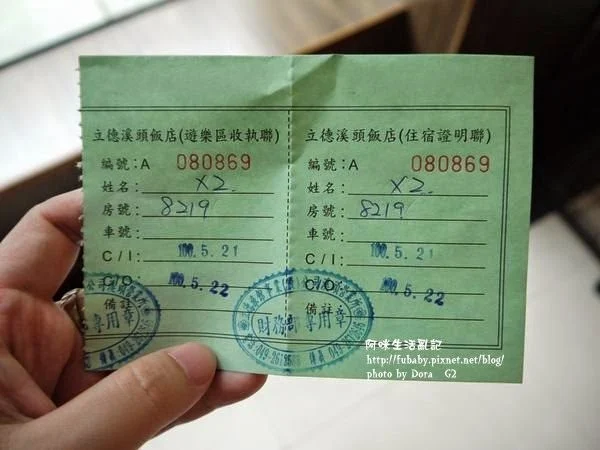 立德溪頭飯店(遊樂區收執聯)
編號:A 080869
姓名: X2.
房號: 8219
車號:
C/I: 100.5.21
C/O: 100.5.22
備註
專用章
立德溪頭飯店(住宿證明聯)
編號:A 080869
姓名: X2.
房號: 8219
車號:
C/I: 100.5.21
C/O: 100.5.22
備註
財務部 專用章
阿咪生活亂記
http://fubaby.pixnet.net/blog/
photo by Dora G2